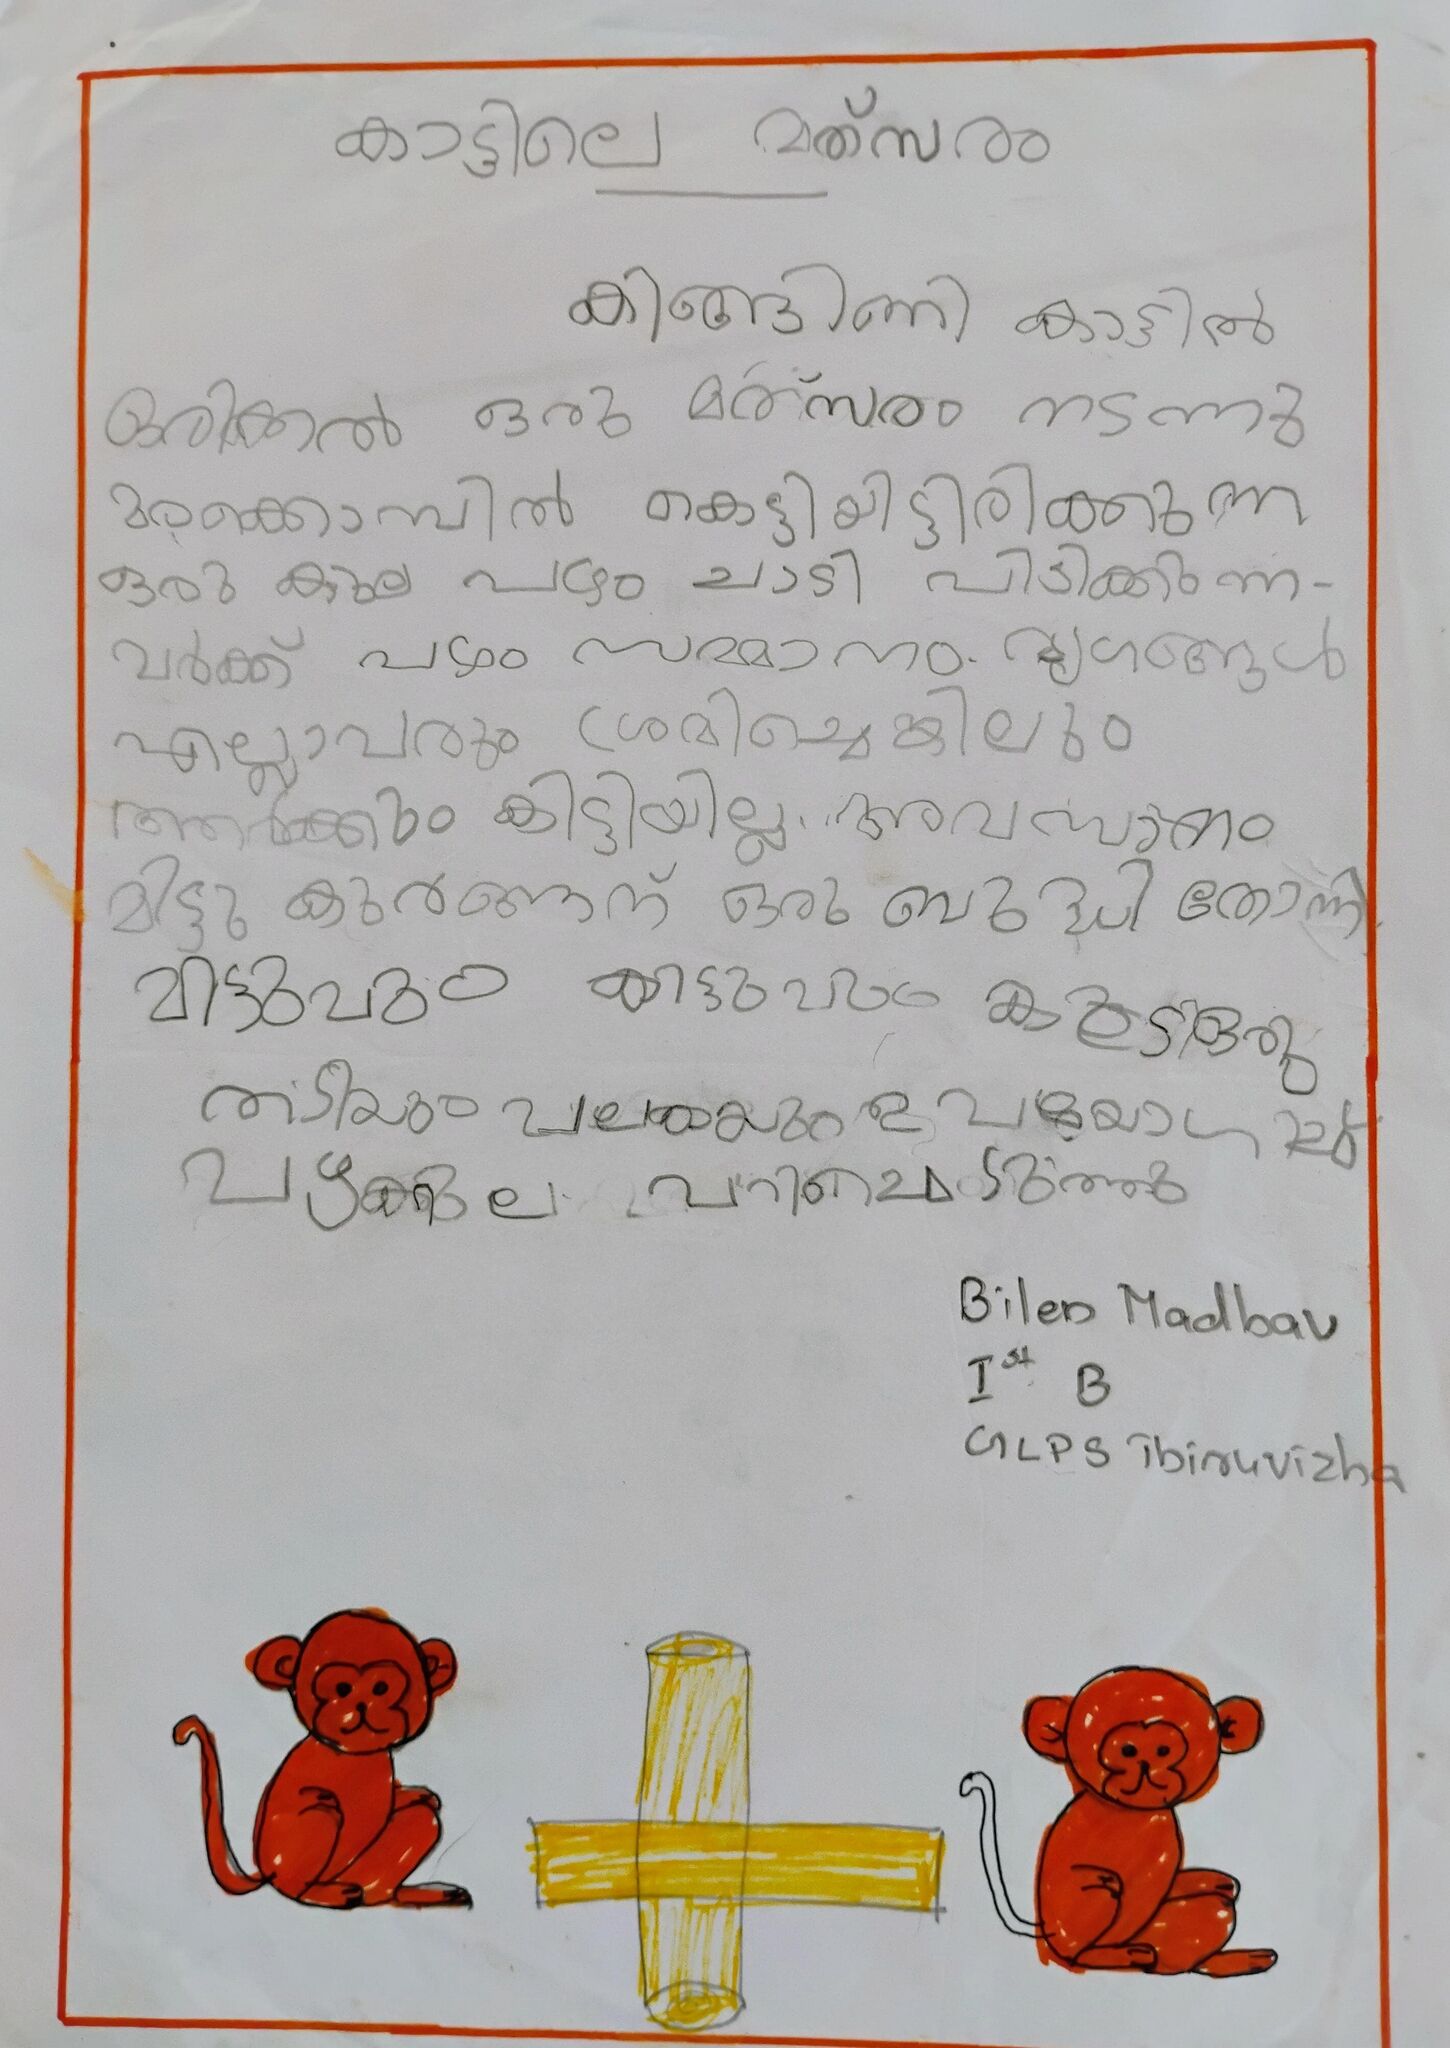 കാട്ടിലെ മത്സരം
കിങ്ങിണി കാട്ടിൽ
ഒരിക്കൽ ഒരു മത്സരം നടന്നു
മരക്കൊമ്പിൽ കെട്ടിയിട്ടിരിക്കുന്ന
ഒരു കുല പഴം ചാടി പിടിക്കുന്ന-
വർക്ക് പഴം സമ്മാനം. മൃഗങ്ങൾ
എല്ലാവരും ശ്രമിച്ചെങ്കിലും
ആർക്കും കിട്ടിയില്ല. അവസാനം
മിട്ടു കുരങ്ങന് ഒരു ബുദ്ധി തോന്നി.
മിട്ടുവും കിട്ടുവും കൂടി ഒരു
തടിയും പലകയും ഉപയോഗിച്ച്
പഴക്കുല പറിച്ചെടുത്തു
Bilen Madhav
Ist B
GLPS Thiruvizha